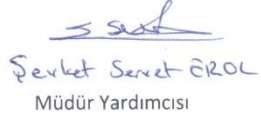 Şevket Servet EROL
Müdür Yardımcısı